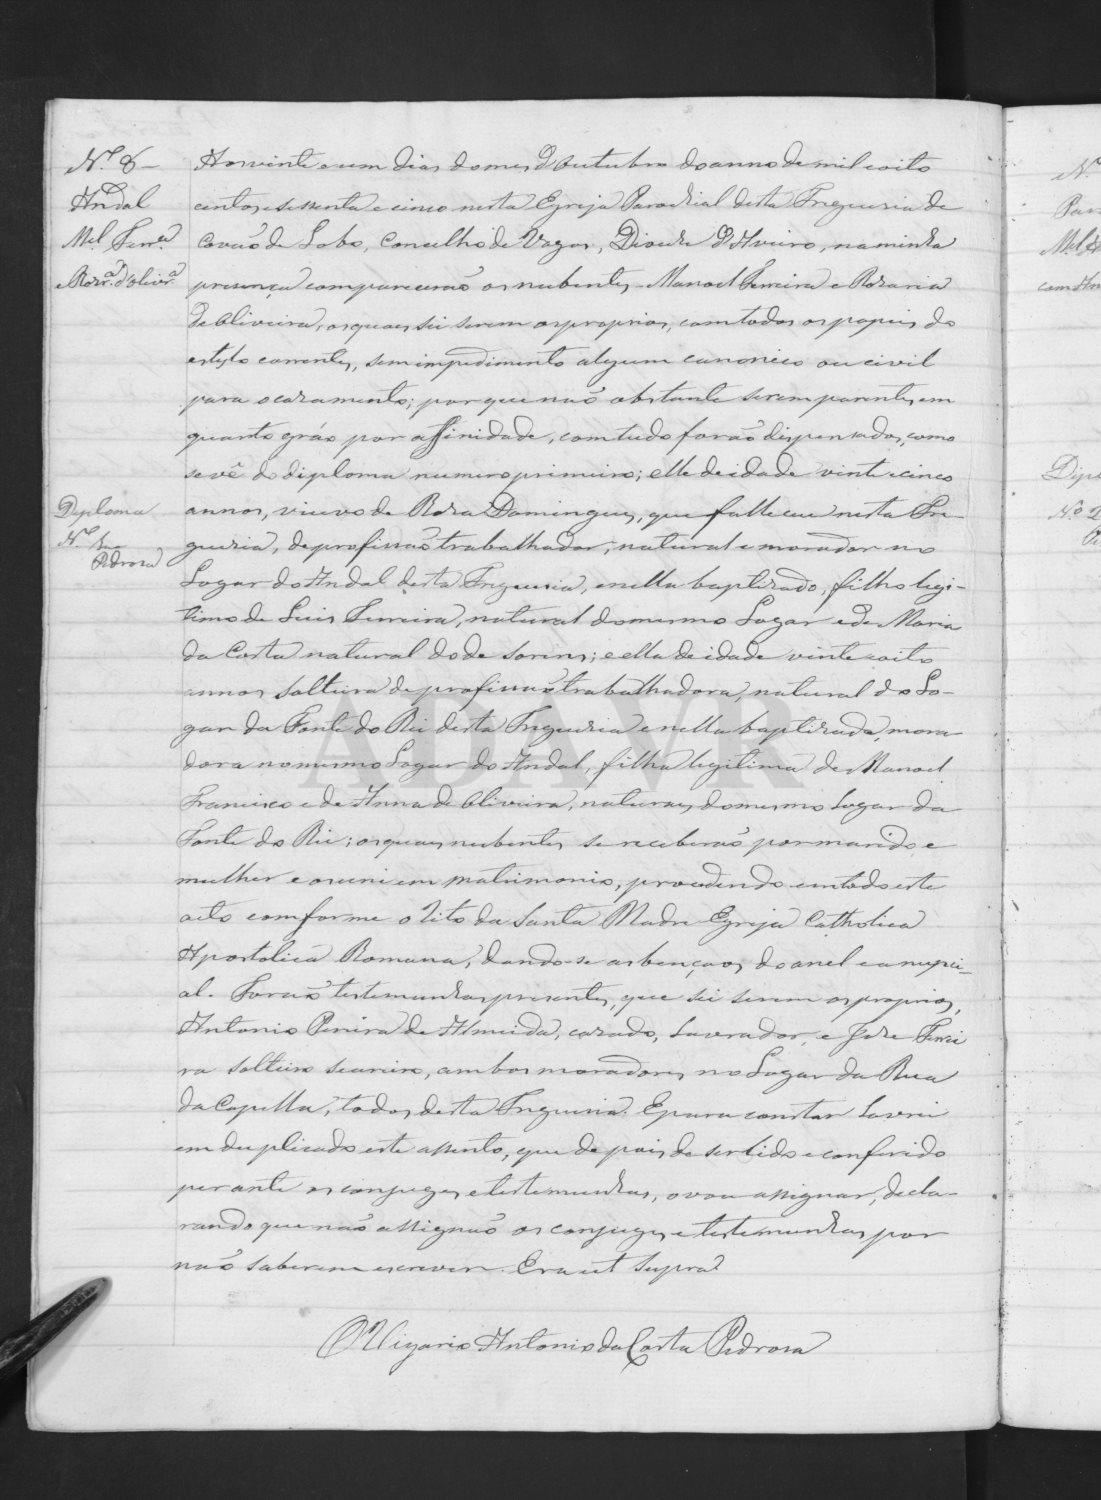 N.º 8
Andal
Mel Ferr.ª
e Rozr.ª d'Olivr.ª
Aos vinte e um dias do mes d'Outubro do anno de mil oito
centos e sessenta e cinco nesta Egreja Parochial desta Freguesia de
Covão de Lobo, Concelho de Vagos, Diocese d'Aveiro, na minha
presença comparecerão os nubentes Manoel Ferreira e Rozaria
de Oliveira, os quaes sei serem os proprios, com todos os papeis do
estylo correntes, sem impedimento algum canonico ou civil
para o cazamento; por que não obstante serem parentes em
quarto gráo por affinidade, com tudo forão dispensados, como
se vê do diploma numero primeiro; elle de idade vinte e cinco
annos, viuvo de Roza Domingues, que falleceu nesta Fre-
guezia, de profissão trabalhador, natural e morador no
Diploma
N.º 1.º
Pedrosa
Logar do Andal desta Freguesia, e nella baptizado, filho legi-
timo de Luis Ferreira, natural do mesmo Logar e de Maria
da Costa natural do de Sorins; e ella de idade vinte e oito
annos solteira de profissão trabalhadora, natural do Lo-
gar da Fonte do Rei desta Freguezia e nella baptizada, mora
dora no mesmo Logar do Andal, filha legitima de Manoel
Francisco e de Anna de Oliveira, naturaes do mesmo Logar da
Fonte do Rei; os quaes nubentes se receberão por marido e
mulher e os uni em matrimonio, procedendo em todo este
acto comforme o rito da Santa Madre Egreja Catholica
Apostolica Romana, dando-se as bençaos do anel e a nupci-
al. Forão testemunhas presentes, que sei serem os proprios,
Antonio Pereira de Almeida, cazado, Lavrador, e Joze Ferrei
ra solteiro seareiro, ambos moradores no Logar da Rua
da Capella, todos desta Freguesia. E para constar Lavrei
em duplicado este assento, que depois de ser lido e conferido
perante os conjuges e testemunhas, o vou assignar, decla-
rando que não assignão os conjuges e testemunhas por
não saberem escrever. Era ut supra.
O Vigario Antonio da Costa Pedrosa
ADAVR